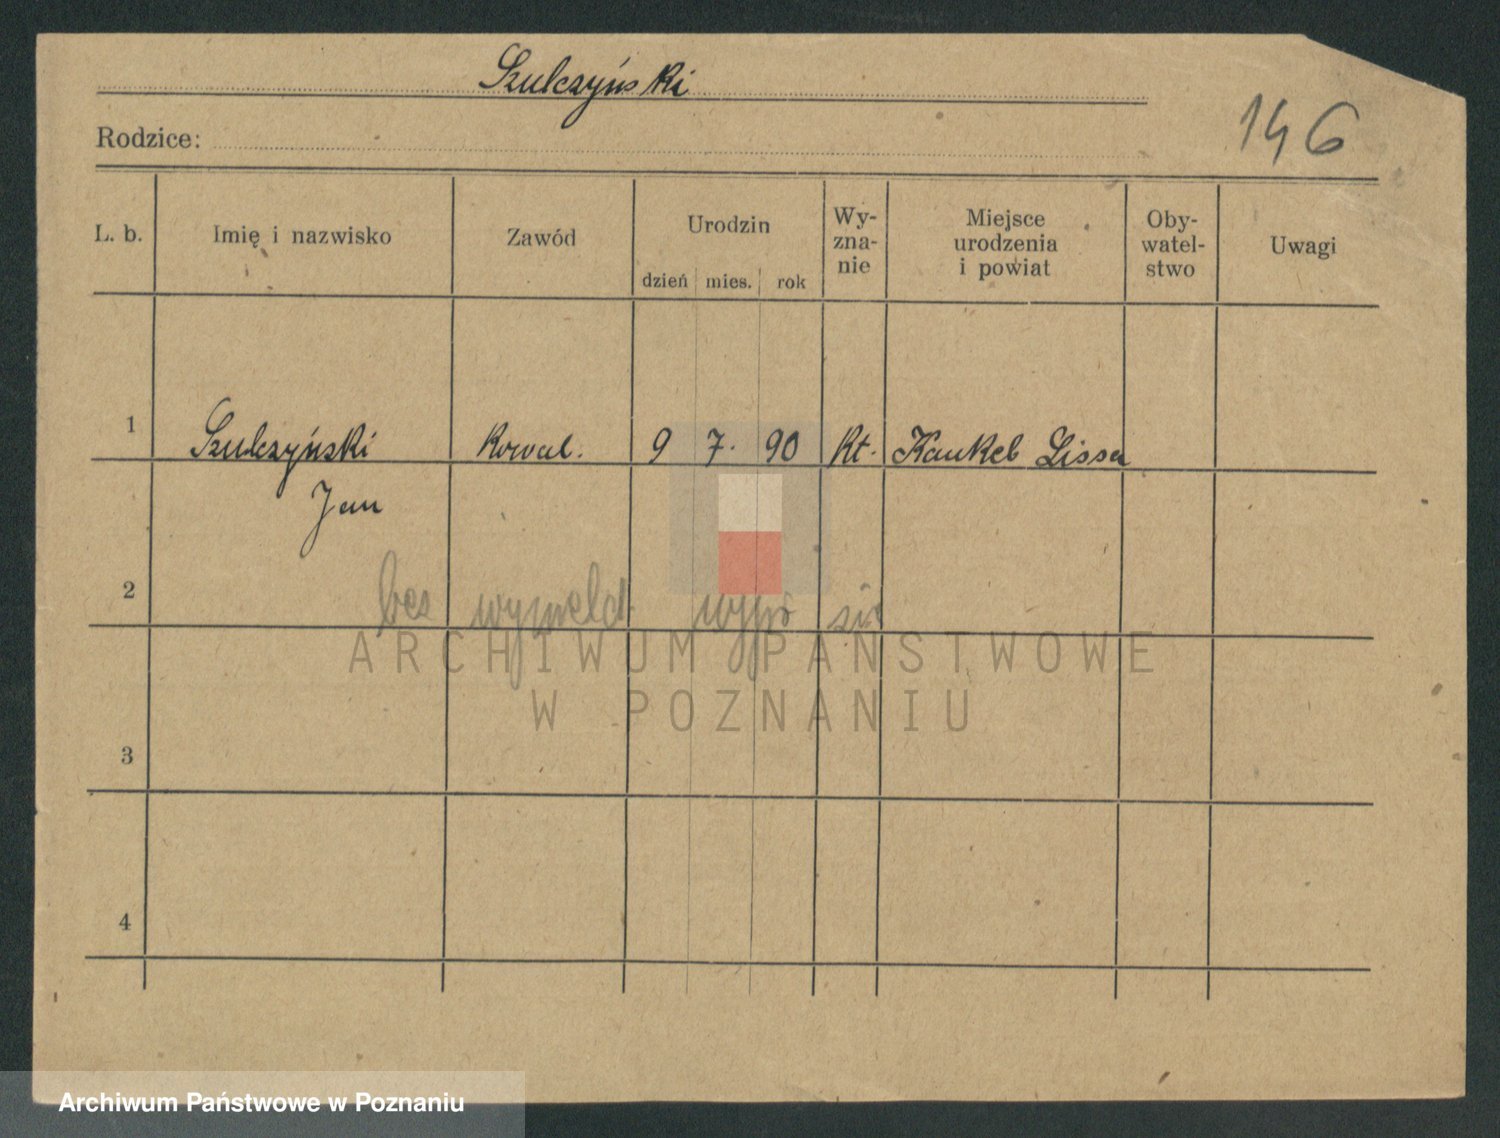 Szulczyński
146
Rodzice:
L. b. Imię i nazwisko Zawód Urodzin dzień mies. rok Wy-zna-nie Miejsce urodzenia i powiat Oby-watel-stwo Uwagi
1 Szulczyński Kowal. 9 7. 90 Rt. Kankel Lissa
Jan
2 bez wymeld. wypr się
ARCHIWUM PAŃSTWOWE
W POZNANIU
3
4
Archiwum Państwowe w Poznaniu